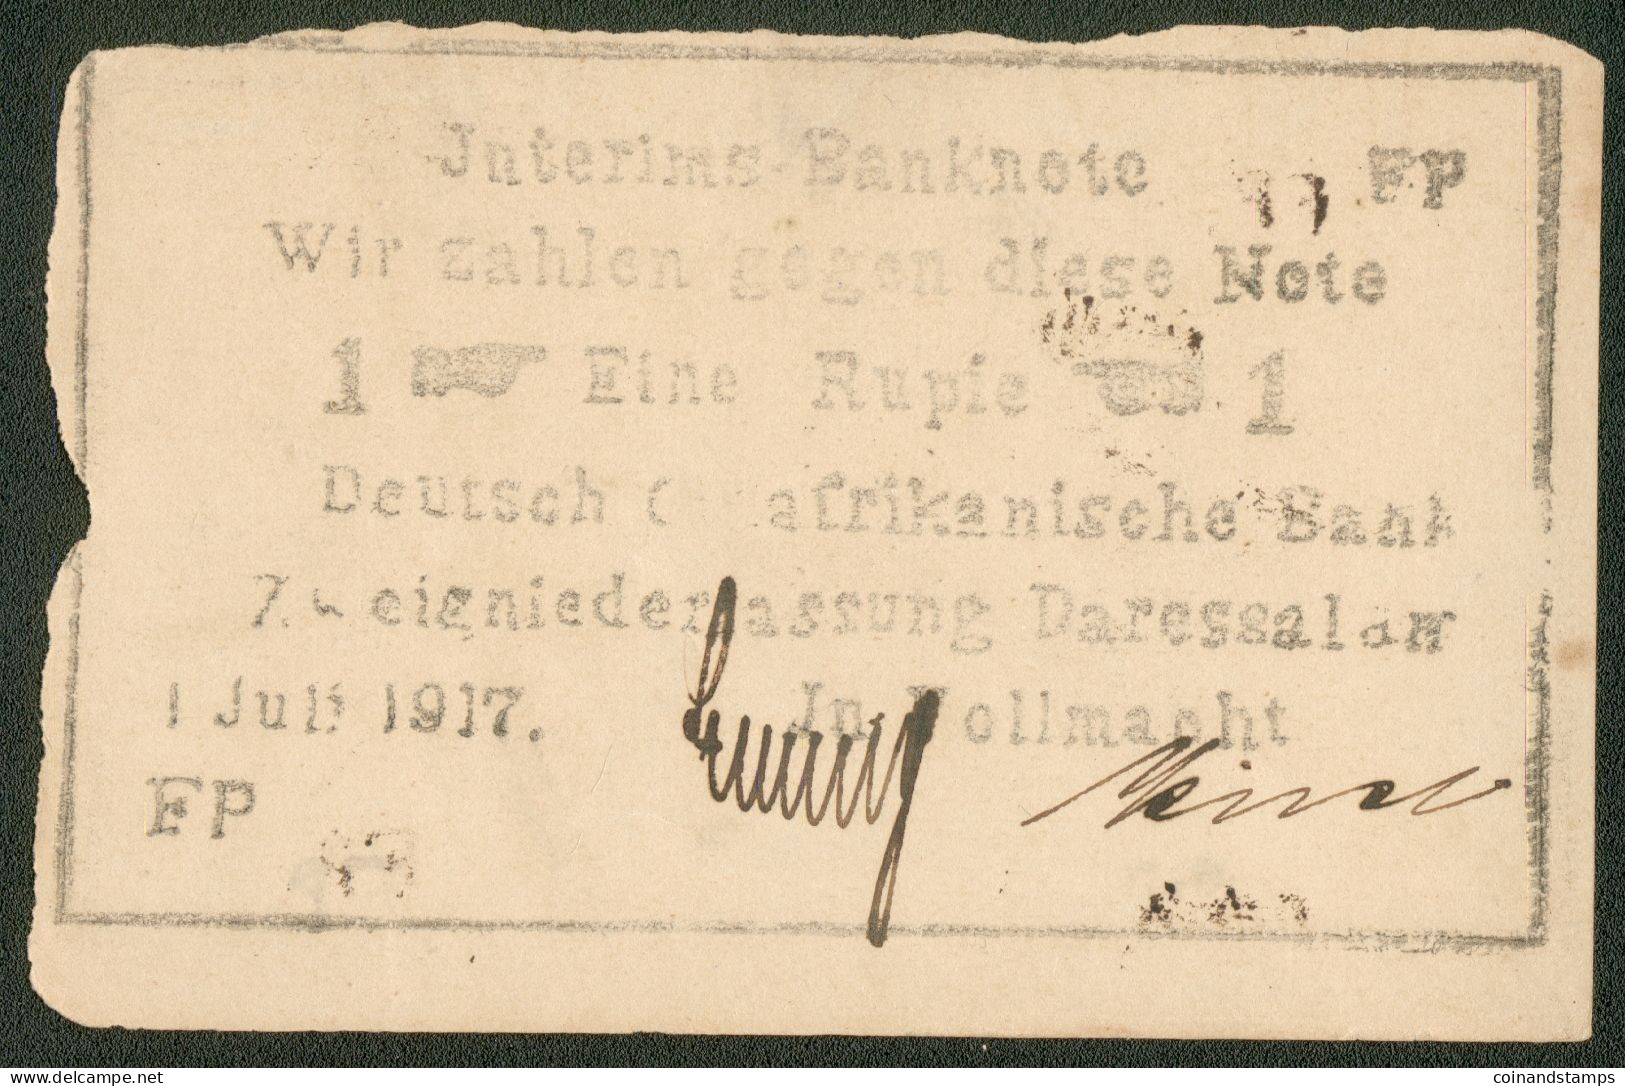 Jnterims-Banknote FP
Wir zahlen gegen diese Note
1 Eine Rupie 1
Deutsch afrikanische Bank
Zweigniederlassung Daressalam
1 Juli 1917. In Vollmacht
FP
coinandstamps